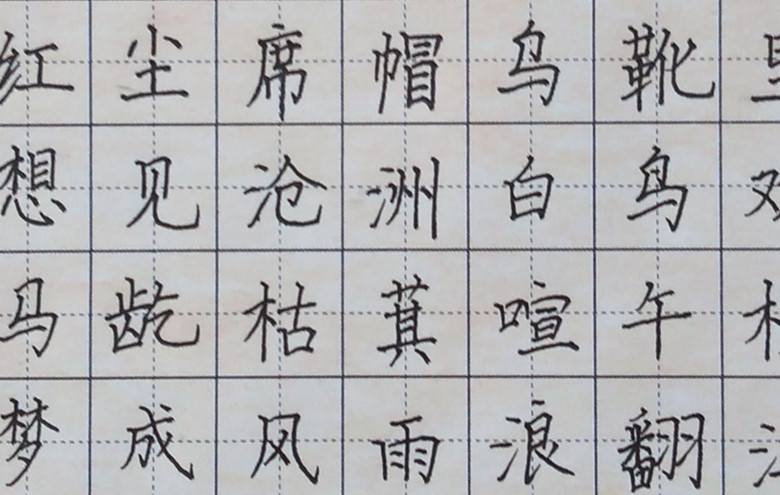 红尘席帽乌靴
想见沧洲白鸟
马龁枯萁喧午
梦成风雨浪翻